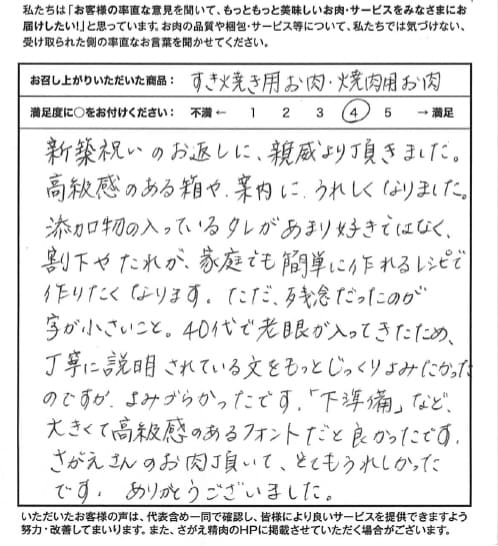 私たちは「お客様の率直な意見を聞いて、もっともっと美味しいお肉・サービスをみなさまにお
届けしたい！」と思っています。お肉の品質や梱包・サービス等について、私たちでは気づけない、
受け取られた側の率直なお言葉を聞かせてください。
お召し上がりいただいた商品： すき焼き用お肉・焼肉用お肉
満足度に○をお付けください： 不満 ← 1 2 3 4 5 → 満足
新築祝いのお返しに、親戚より頂きました。
高級感のある箱や、案内に、うれしくなりました。
添加物の入っているタレがあまり好きではなく、
割下やたれが、家庭でも簡単に作れるレシピで
作りたくなります。ただ、残念だったのが
字が小さいこと。40代で老眼が入ってきたため、
丁寧に説明されている文をもっとじっくりよみたかった
のですが、よみづらかったです。「下準備」など、
大きくて高級感のあるフォントだと良かったです。
さがえさんのお肉頂いて、とてもうれしかった
です。ありがとうございました。
いただいたお客様の声は、代表含め一同で確認し、皆様により良いサービスを提供できますよう
努力・改善してまいります。また、さがえ精肉のHPに掲載させていただく場合がございます。